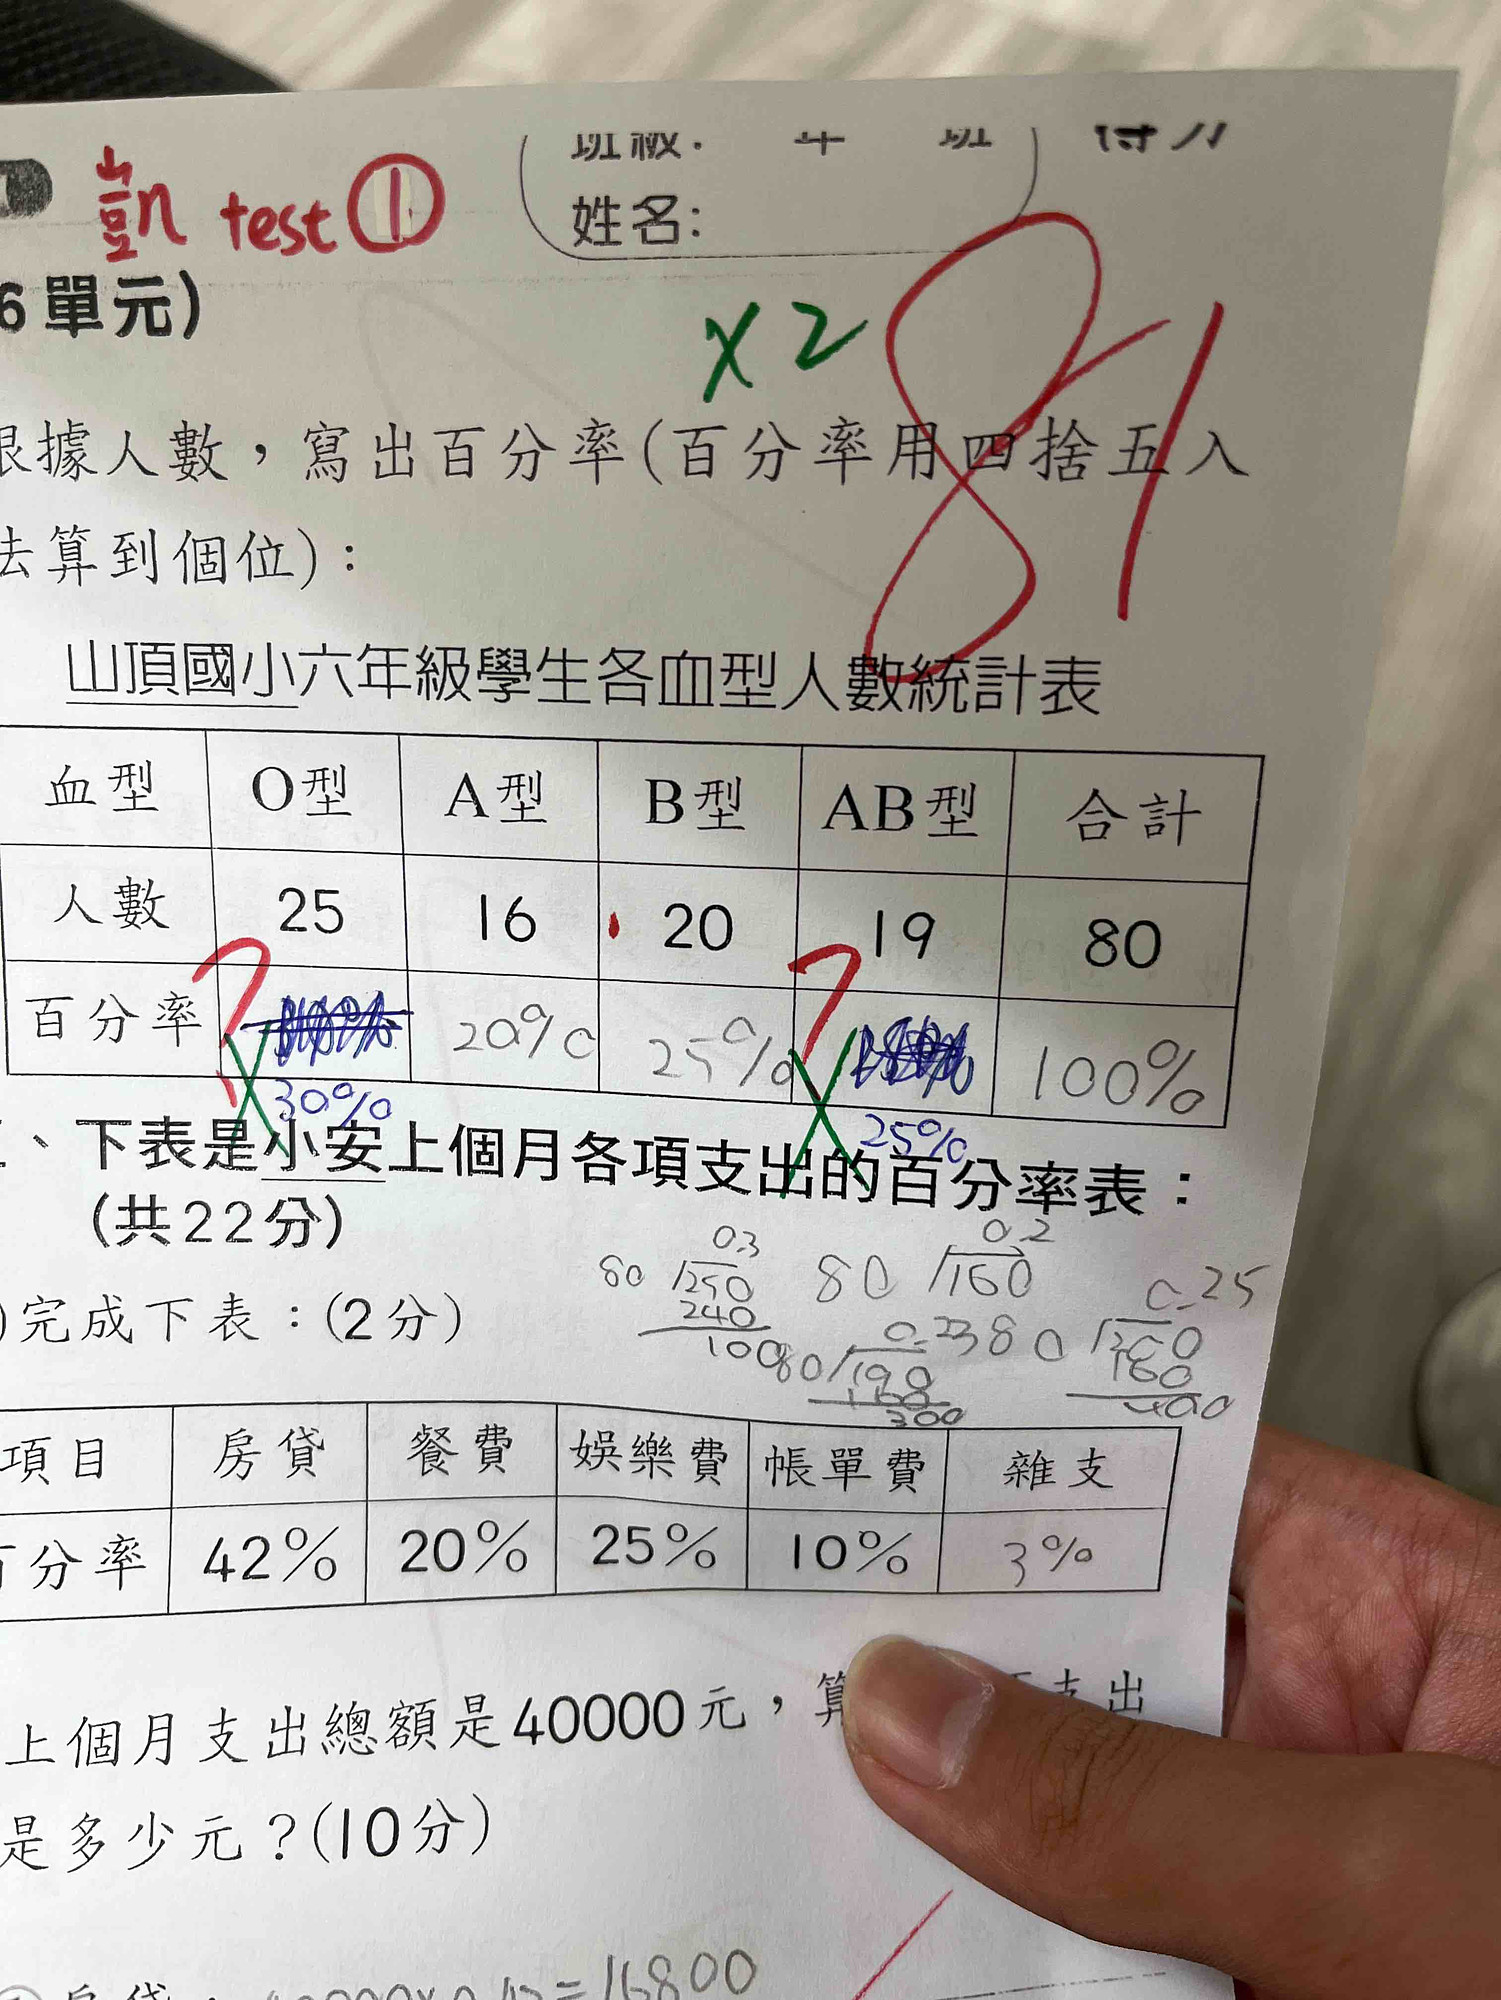 凱 test ①
班級: 年 班
得分
姓名:
6單元)
×2
81
根據人數，寫出百分率(百分率用四捨五入
法算到個位)：
山頂國小六年級學生各血型人數統計表
血型 O型 A型 B型 AB型 合計
人數 25 16 20 19 80
百分率 20% 25% 100%
30% 25%
、下表是小安上個月各項支出的百分率表：
(共22分)
0.3 0.2
80 250 80 160 0.25
)完成下表：(2分)
240
100
項目 房貸 餐費 娛樂費 帳單費 雜支
百分率 42% 20% 25% 10% 3%
上個月支出總額是40000元，算 支出
是多少元？(10分)
=16800